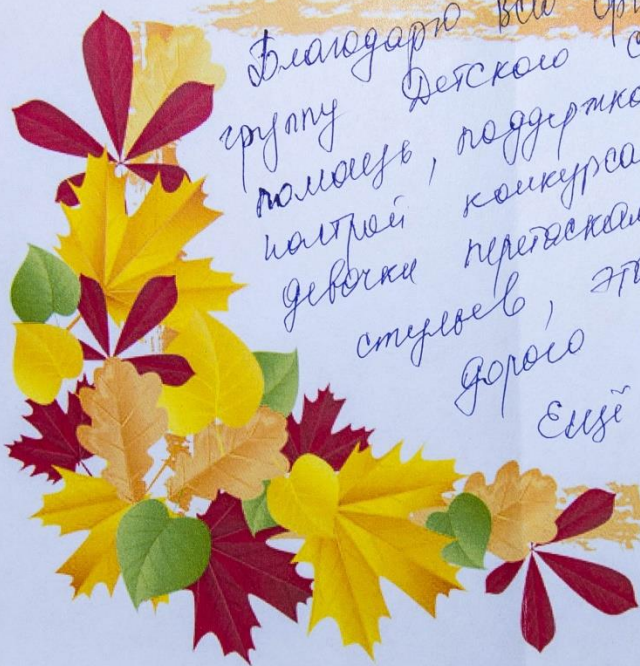 Благодарю всю
группу Детского с
помощь, поддержко
настрой конкурса
девочки перетаскал
стульев, эт
дорого
Ещё